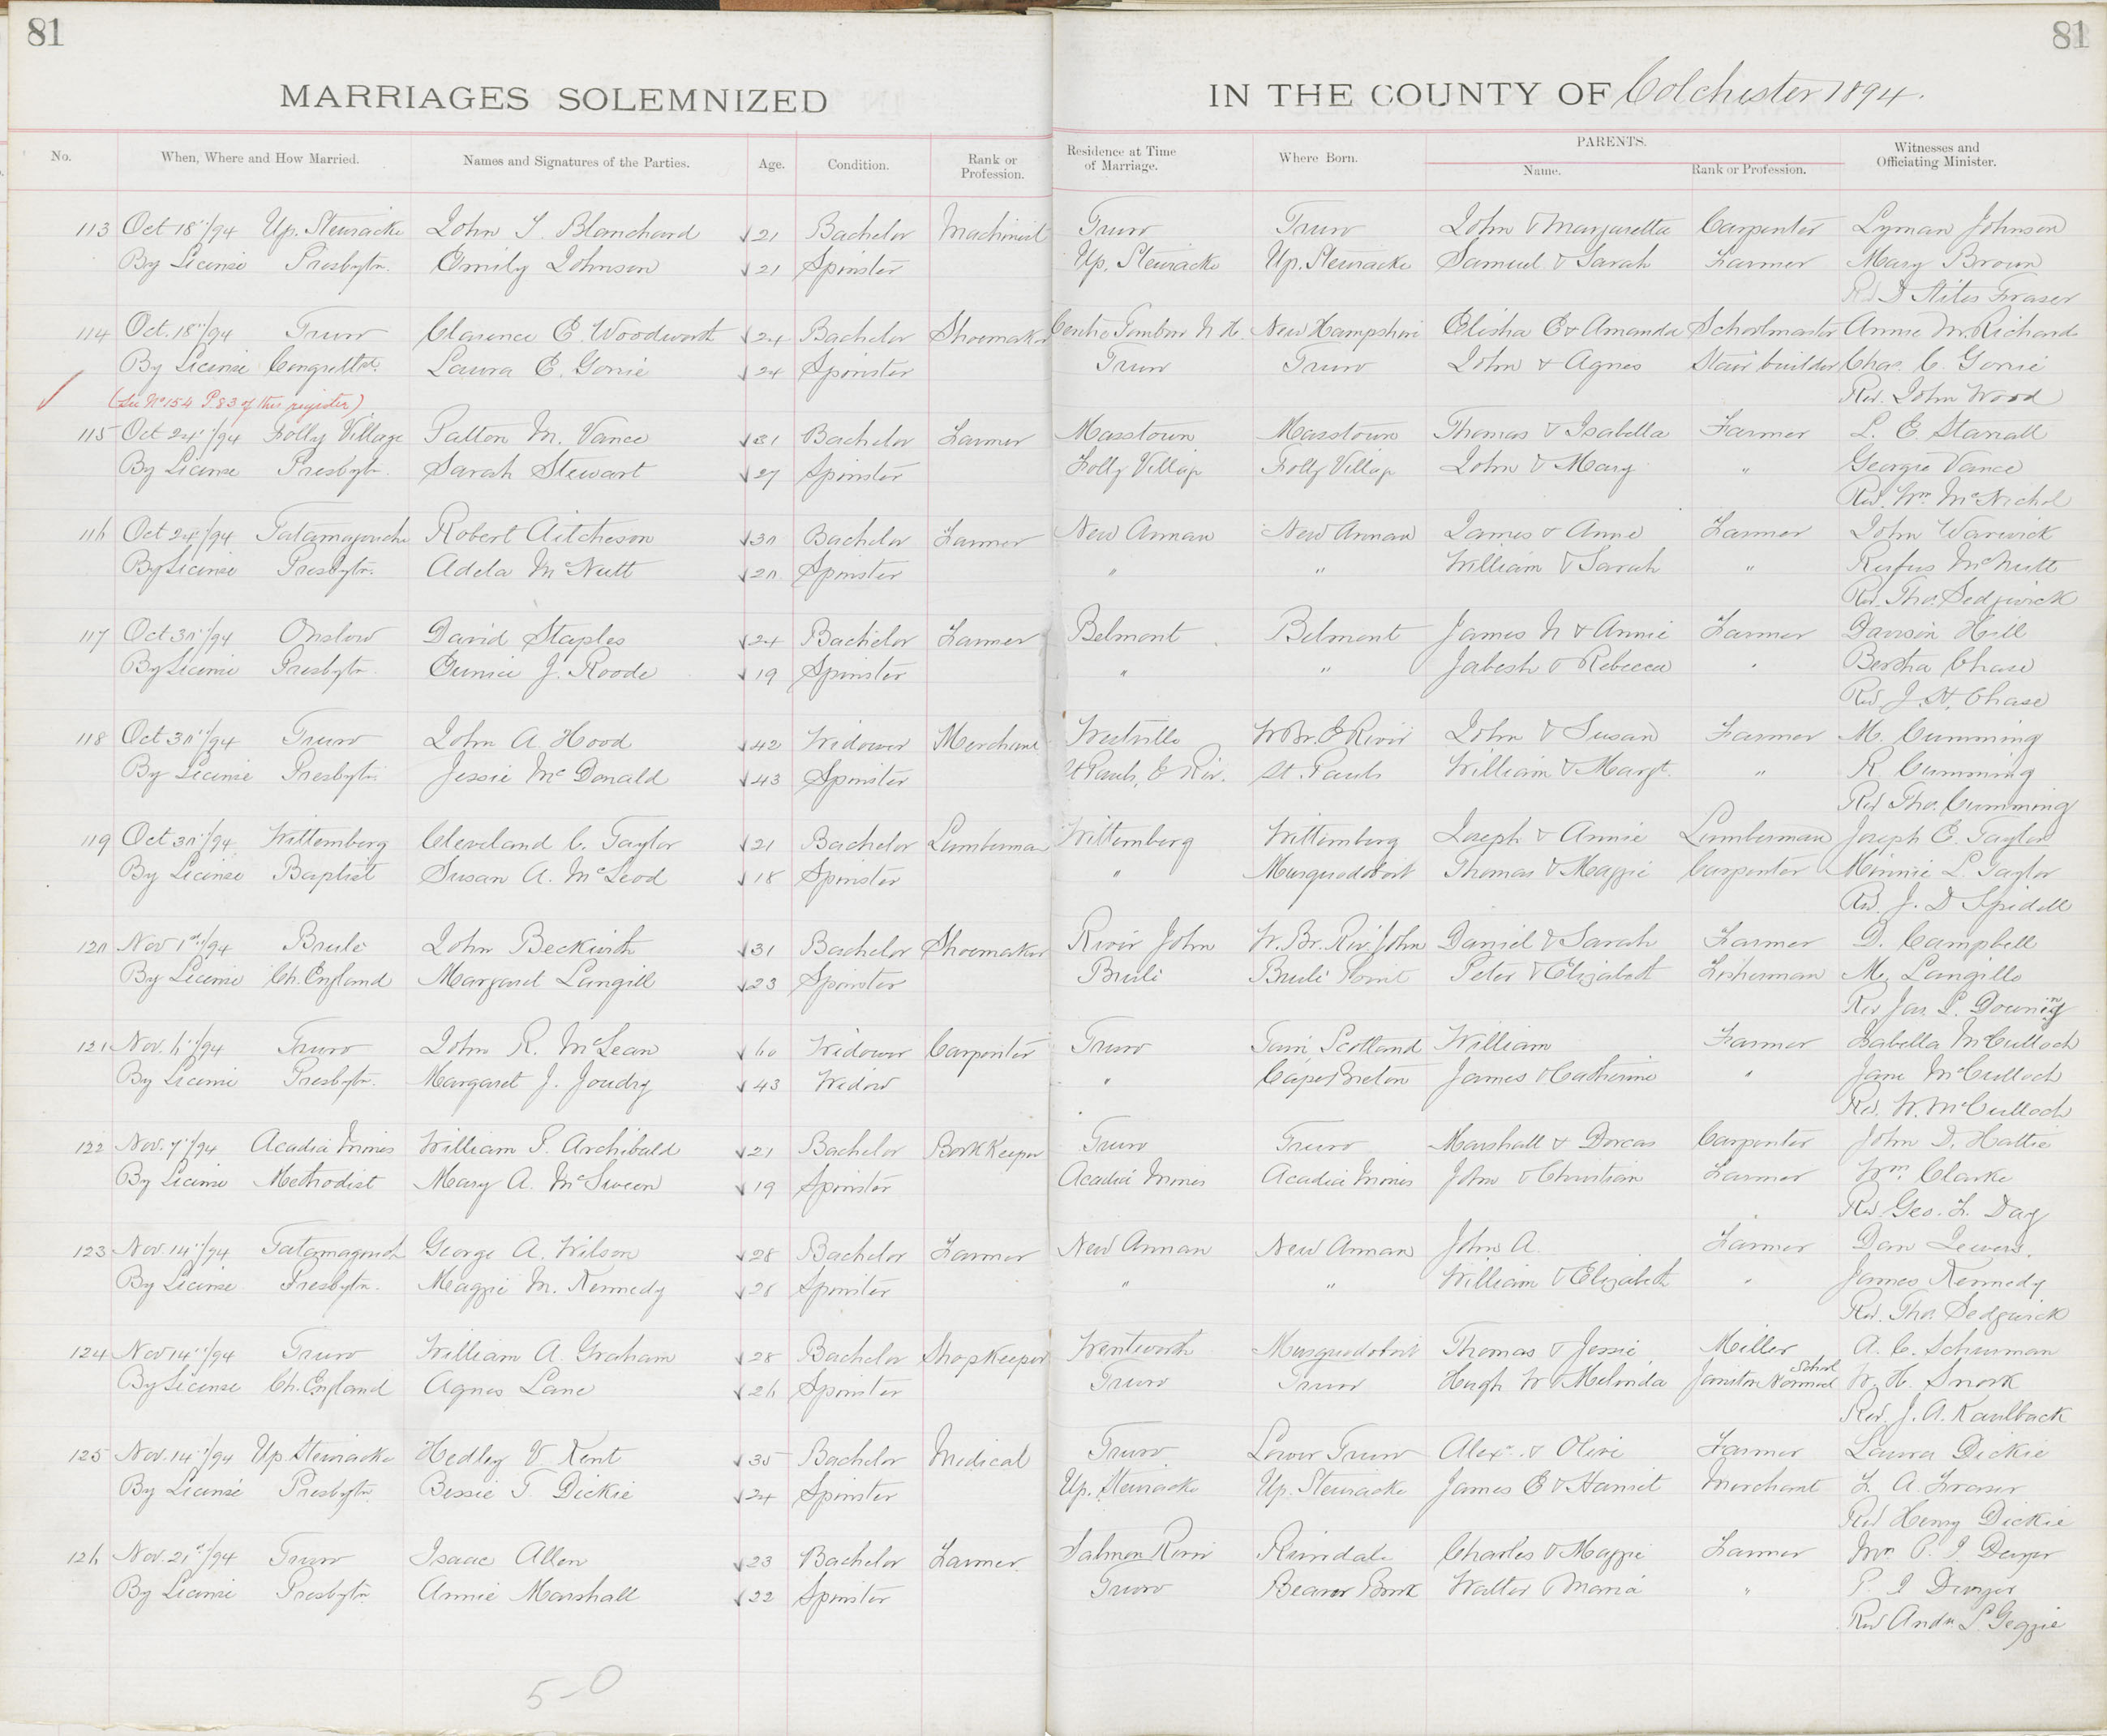 81
81
MARRIAGES SOLEMNIZED IN THE COUNTY OF Colchester 1894.
No. When, Where and How Married. Names and Signatures of the Parties. Age. Condition. Rank or Profession. Residence at Time of Marriage. Where Born. PARENTS. Name. Rank or Profession. Witnesses and Officiating Minister.
113 Oct 18"/94 Up. Stewiacke John S. Blanchard 21 Bachelor Machinist Truro Truro John & Margaretta Carpenter Lyman Johnson
By License Presbytn. Emily Johnson 21 Spinster Up. Stewiacke Up. Stewiacke Samuel & Sarah Farmer Mary Brown
Rev D Stiles Fraser
114 Oct. 18"/94 Truro Clarence E. Woodworth 24 Bachelor Shoemaker Centre N.H. New Hampshire Elisha E & Amanda Schoolmaster Annie McRichard
By License Laura E. Gorrie 24 Spinster Truro Truro John & Agnes Stair builder Chas. C. Gorrie
Rev. John Wood
(See No 154 P83 of this register)
115 Oct 24"/94 Folly Village Patton M. Vance 31 Bachelor Farmer Masstown Masstown Thomas & Isabella Farmer L. E.
By License Presbytn. Sarah Stewart 27 Spinster Folly Village Folly Village John & Mary " George Vance
Rev. Wm. McNichol
116 Oct 24"/94 Tatamagouche Robert Aitcheson 30 Bachelor Farmer New Annan New Annan James & Anne Farmer John Warwick
By License Presbytn. Adela McNutt 20 Spinster " " William & Sarah " Rufus McNutt
Rev. Thos. Sedgwick
117 Oct 30"/94 Onslow David Staples 24 Bachelor Farmer Belmont Belmont James N & Annie Farmer Dawson Hill
By License Presbytn. Eunice J. Roode 19 Spinster " " Jabesh & Rebecca " Bertha Chase
Rev J. H. Chase
118 Oct 30"/94 Truro John A Hood 42 Widower Merchant Westville W.Br. E River John & Susan Farmer M. Cumming
By License Presbytn. Jessie McDonald 43 Spinster St Pauls, E Riv. St. Pauls William & Margt. " R Cumming
Rev Thos. Cumming
119 Oct 30"/94 Wittemberg Cleveland C. Taylor 21 Bachelor Lumberman Wittemberg Wittemberg Joseph & Annie Lumberman Joseph E. Taylor
By License Baptist Susan A. McLeod 18 Spinster " Musquodoboit Thomas & Maggie Carpenter Minnie L. Taylor
Rev. J. D Spidell
120 Nov 1st/94 Brule John Beckwith 31 Bachelor Shoemaker River John W. Br. Riv. John Daniel & Sarah Farmer D. Campbell
By License Ch. England Margaret Langill 23 Spinster Brule Brule Point Peter & Elizabeth Fisherman M. Langille
Rev Jas. P. Downing
121 Nov. 6"/94 Truro John R. McLean 60 Widower Carpenter Truro Tain, Scotland William Farmer Isabella McCulloch
By License Presbytn. Margaret J. Joudry 43 Widow " Cape Breton James & Catherine " Jane McCulloch
Rev. W. McCulloch
122 Nov. 7"/94 Acadia Mines William P. Archibald 21 Bachelor Book Keeper Truro Truro Marshall & Dorcas Carpenter John D. Hattie
By License Methodist Mary A. McSween 19 Spinster Acadia Mines Acadia Mines John & Christian Farmer Wm. Clarke
Rev Geo. F. Day
123 Nov. 14"/94 Tatamagouch George A. Wilson 28 Bachelor Farmer New Annan New Annan John A. Farmer Dan
By License Presbytn. Maggie M. Kennedy 26 Spinster " " William & Elizabeth " James Kennedy
Rev. Thos Sedgwick
124 Nov 14"/94 Truro William A. Graham 28 Bachelor Shopkeeper Wentworth Musquodoboit Thomas & Jessie Miller A. C. Schurman
By License Ch. England Agnes Lane 26 Spinster Truro Truro Hugh W & Melinda Janitor Normal School W. H. Snook
Rev. J. A. Kaulback
125 Nov. 14"/94 Up. Stewiacke Hedley V. Kent 35 Bachelor Medical Truro Lower Truro Alexr. & Olive Farmer Laura Dickie
By License Presbytn. Bessie T. Dickie 24 Spinster Up. Stewiacke Up. Stewiacke James E & Harriet Merchant F. A. Fraser
Rev Henry Dickie
126 Nov. 21st/94 Truro Isaac Allen 23 Bachelor Farmer Salmon River Riversdale Charles & Maggie Farmer Mrs P. J. Dwyer
By License Presbytn Annie Marshall 22 Spinster Truro Beaver Brook Walter & Maria " P. J. Dwyer
Rev Andw. L. Geggie
5-0